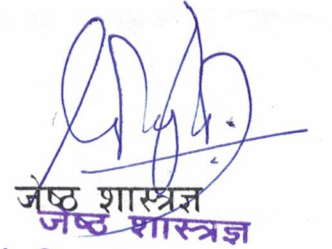 जेष्ठ शास्त्रज्ञ
जेष्ठ शास्त्रज्ञ